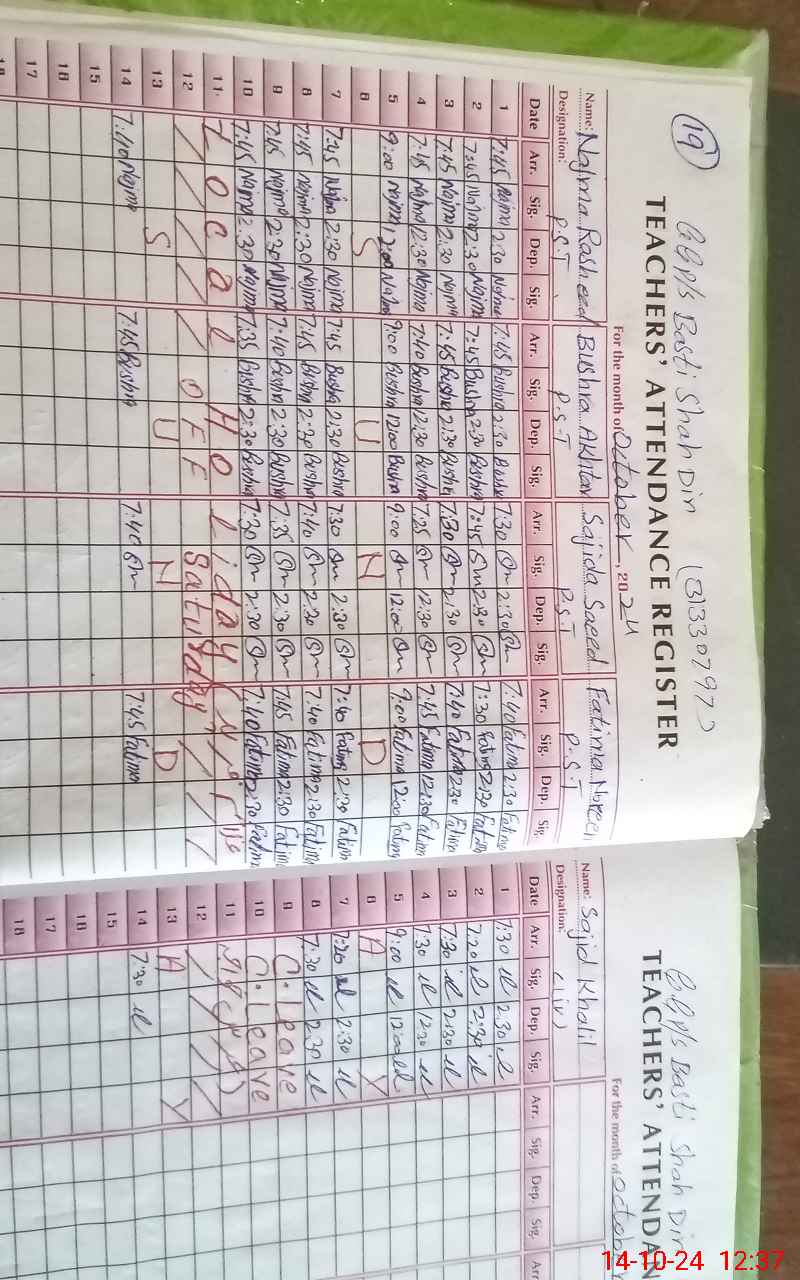 19
GGP/s Basti Shah Din (3)330797
TEACHERS' ATTENDANCE REGISTER
For the month of October, 2024
Name: Najma Rasheed Bushra Akhtar Sajida Saeed Fatima Noreen
Designation: P.S.T P.S.T P.S.T P.S.T
Date Arr. Sig. Dep. Sig. Arr. Sig. Dep. Sig. Arr. Sig. Dep. Sig. Arr. Sig. Dep. Sig.
1 7:45 Najma 2:30 Najma 7:45 Bushra 2:30 Bushra 7:30 2:30 7:40 Fatima 2:30 Fatima
2 7:45 Najma 2:30 Najma 7:45 Bushra 2:30 Bushra 7:45 2:30 7:30 Fatima 2:30 Fatima
3 7:45 Najma 2:30 Najma 7:45 Bushra 2:30 Bushra 7:30 2:30 7:40 Fatima 2:30 Fatima
4 7:45 Najma 12:30 Najma 7:40 Bushra 12:30 Bushra 7:25 12:30 7:45 Fatima 12:30 Fatima
5 9:00 Najma 12:00 Najma 9:00 Bushra 12:00 Bushra 9:00 12:00 9:00 Fatima 12:00 Fatima
6 S U N D
7 7:45 Najma 2:30 Najma 7:45 Bushra 2:30 Bushra 7:30 2:30 7:40 Fatima 2:30 Fatima
8 7:45 Najma 2:30 Najma 7:45 Bushra 2:30 Bushra 7:40 2:30 7:40 Fatima 2:30 Fatima
9 7:45 Najma 2:30 Najma 7:40 Bushra 2:30 Bushra 7:35 2:30 7:45 Fatima 2:30 Fatima
10 7:45 Najma 2:30 Najma 7:35 Bushra 2:30 Bushra 7:30 2:30 7:40 Fatima 2:30 Fatima
11 Local Holiday
12 OFF Saturday
13 S U N D
14 7:40 Najma 7:45 Bushra 7:40 7:45 Fatima
15
16
17
18
GGP/s Basti Shah Din
TEACHERS' ATTENDAN
For the month of October
Name: Sajid Khalil
Designation: C(iv)
Date Arr. Sig. Dep. Sig. Arr. Sig. Dep. Sig. Arr.
1 7:30 2:30
2 7:20 2:30
3 7:30 2:30
4 7:30 12:30
5 9:00 12:00
6 A Y
7 7:20 2:30
8 7:30 2:30
9 C.Leave
10 C.Leave
11
12
13 A Y
14 7:30
15
16
17
18
14-10-24 12:37